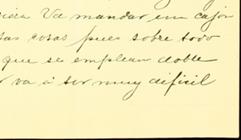 Vd. mandar un cajon
cosas pues sobre todo
que se emplean doble
va á ser muy dificil